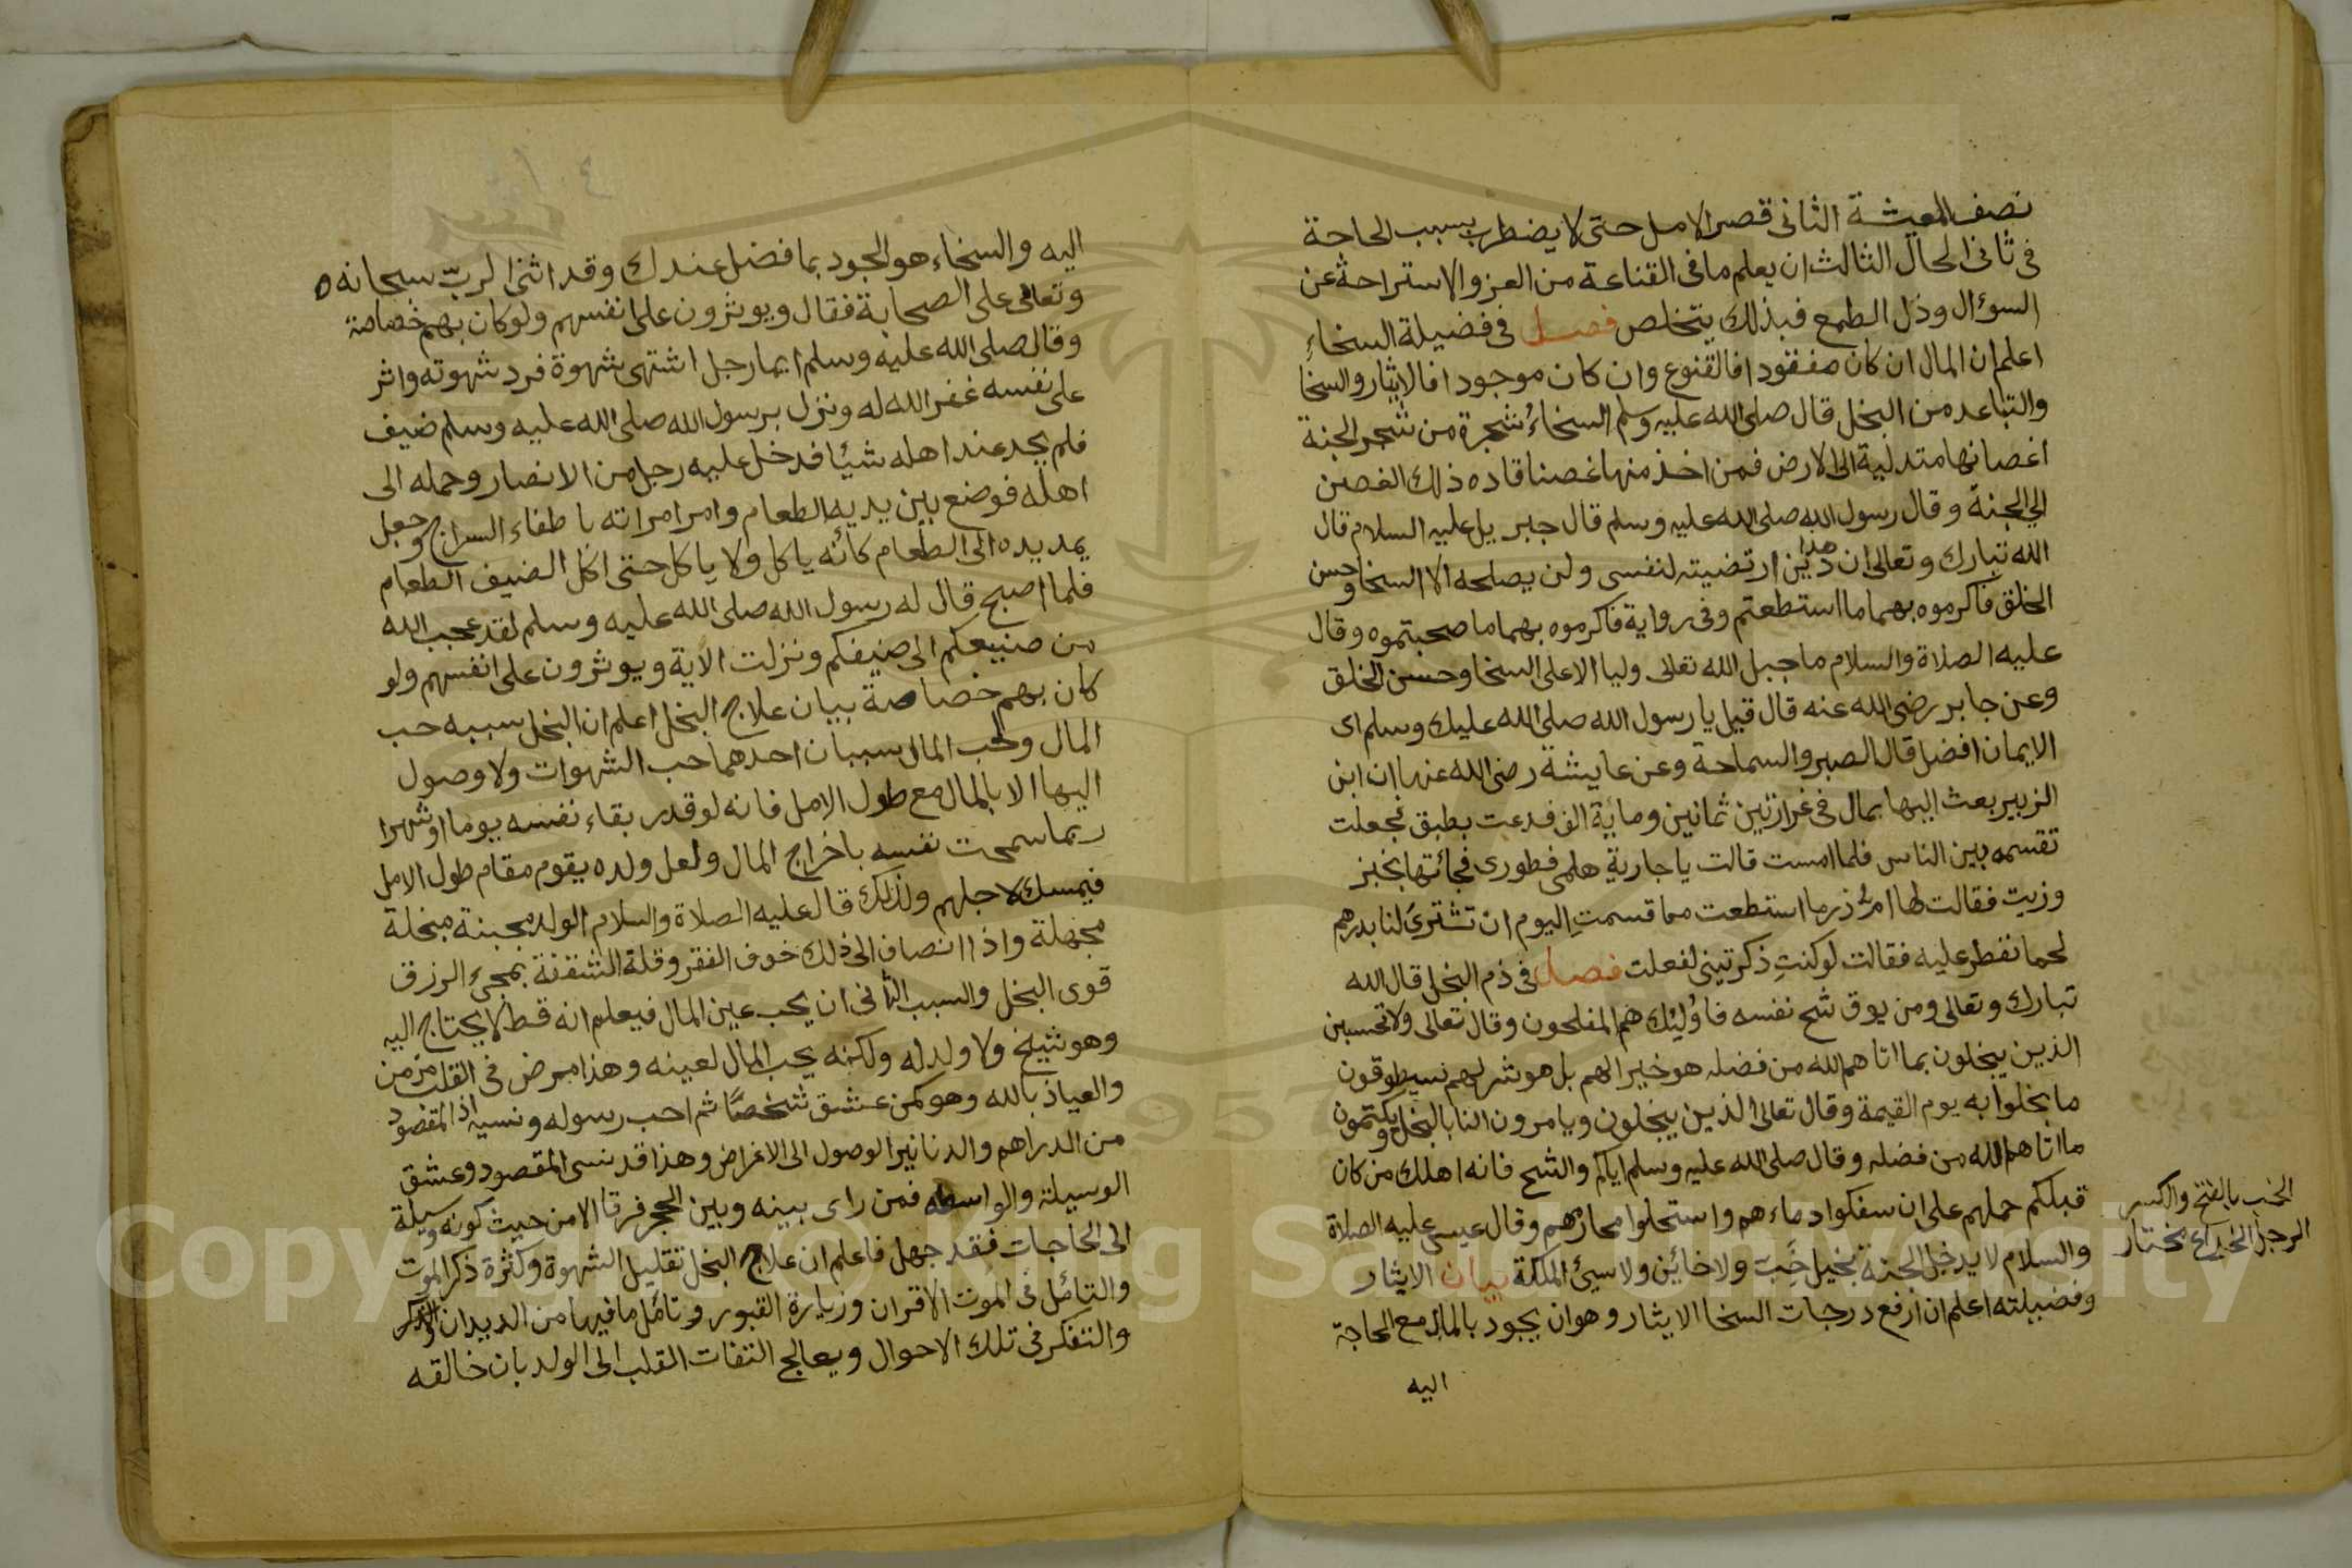 نصف المعيشة الثانى قصر الامل حتى لا يضطرب بسبب الحاجة
فى ثانى الحال الثالث ان يعلم ما فى القناعة من العز والاستراحة عن
السوءال وذل الطمع فبذلك يتخلص فصل فى فضيلة السخاءِ
اعلم ان المال ان كان مفقودا فالقنوع وان كان موجودا فالايثار والسخا
والتباعد من البخل قال صلى الله عليه وسلم السخاءُ شجرة من شجر الجنة
اغصانها متدلية الى الارض فمن اخذ منها غصنا قاده ذلك الغصن
الى الجنة وقال رسول الله صلى الله عليه وسلم قال جبريل عليه السلام قال
الله تبارك وتعالى ان هذا دين ارتضيته لنفسى ولن يصلحه الا السخا وحسن
الخلق فاكرموه بهما ما استطعتم وفى رواية فاكرموه بهما ما صحبتموه وقال
عليه الصلاة والسلام ما جبل الله تعالى وليا الا على السخا وحسن الخلق
وعن جابر رضى الله عنه قال قيل يا رسول الله صلى الله عليك وسلم اى
الايمان افضل قال الصبر والسماحة وعن عايشة رضى الله عنها ان ابن
الزبير بعث اليها بمال فى غرارتين ثمانين ومائة الف فدعت بطبق فجعلت
تقسمه بين الناس فلما امست قالت يا جارية هلمى فطورى فجائتها بخبز
وزيت فقالت لها ام ذر ما استطعت مما قسمتِ اليوم ان تشترى لنا بدرهم
لحما نفطر عليه فقالت لو كنتِ ذكرتينى لفعلت فصل فى ذم البخل قال الله
تبارك وتعالى ومن يوق شح نفسه فاوليك هم المفلحون وقال تعالى ولا تحسبن
الذين يبخلون بما اتاهم الله من فضله هو خيرا لهم بل هو شر لهم سيطوقون
ما بخلوا به يوم القيمة وقال تعالى الذين يبخلون ويامرون النا بالبخل ويكتمون
ما اتاهم الله من فضله وقال صلى الله عليه وسلم اياكم والشح فانه اهلك من كان
قبلكم حملهم على ان سفكوا دماءهم واستحلوا محارمهم وقال عيسى عليه الصلاة
والسلام لا يدخل الجنة بخيل خَِبّ ولا خائن ولا سيئ الملكة بيان الايثار
وفضيلته اعلم ان ارفع درجات السخا الايثار وهو ان يجود بالمال مع الحاجة
اليه
الخب بالفتح والكسر
الرجل الخداع مختار
اليه والسخاء هو الجود بما فضل عندك وقد اثنى الربّ سبحانه ه
وتعالى على الصحابة فقال ويوثرون على انفسهم ولو كان بهم خصاصة
وقال صلى الله عليه وسلم ايما رجل اشتهى شهوة فرد شهوته واثر
على نفسه غفر الله له ونزل برسول الله صلى الله عليه وسلم ضيف
فلم يجد عند اهله شيئا فدخل عليه رجل من الانصار وحمله الى
اهله فوضع بين يديه الطعام وامر امراته باطفاء السراج وجعل
يمد يده الى الطعام كانه ياكل ولا ياكل حتى اكل الضيف الطعام
فلما اصبح قال له رسول الله صلى الله عليه وسلم لقد عجب الله
من صنيعكم الى ضيفكم ونزلت الاية ويوثرون على انفسهم ولو
كان بهم خصاصة بيان علاج البخل اعلم ان البخل سببه حب
المال ولحب المال سببان احدهما حب الشهوات ولا وصول
اليها الا بالمال مع طول الامل فانه لو قدر بقاء نفسه يوما او شهرا
ربما سمحت نفسه باخراج المال ولعل ولده يقوم مقام طول الامل
فيمسك لاجلهم ولذلك قال عليه الصلاة والسلام الولد مجبنة مبخلة
مجهلة واذا انضاف الى ذلك خوف الفقر وقلة الثقة بمجىء الرزق
قوى البخل والسبب الثانى ان يحب عين المال فيعلم انه قط لا يحتاج اليه
وهو شيخ ولا ولد له ولكنه يحب المال لعينه وهذا مرض فى القلب مزمن
والعياذ بالله وهو كمن عشق شخصًا ثم احب رسوله ونسيه اذ المقصود
من الدراهم والدنانير الوصول الى الاغراض وهذا قد نسى المقصود وعشق
الوسيلة والواسطه فمن راى بينه وبين الحجر فرقا الا من حيث كونه وسيلة
الى الحاجات فقد جهل فاعلم ان علاج البخل تقليل الشهوة وكثرة ذكر الموت
والتامل فى الموت الاقران وزيارة القبور وتامل ما فيها من الديدان
والتفكر فى تلك الاحوال ويعالج التفات القلب الى الولد بان خالقه
Copyright © King Saud University
1957